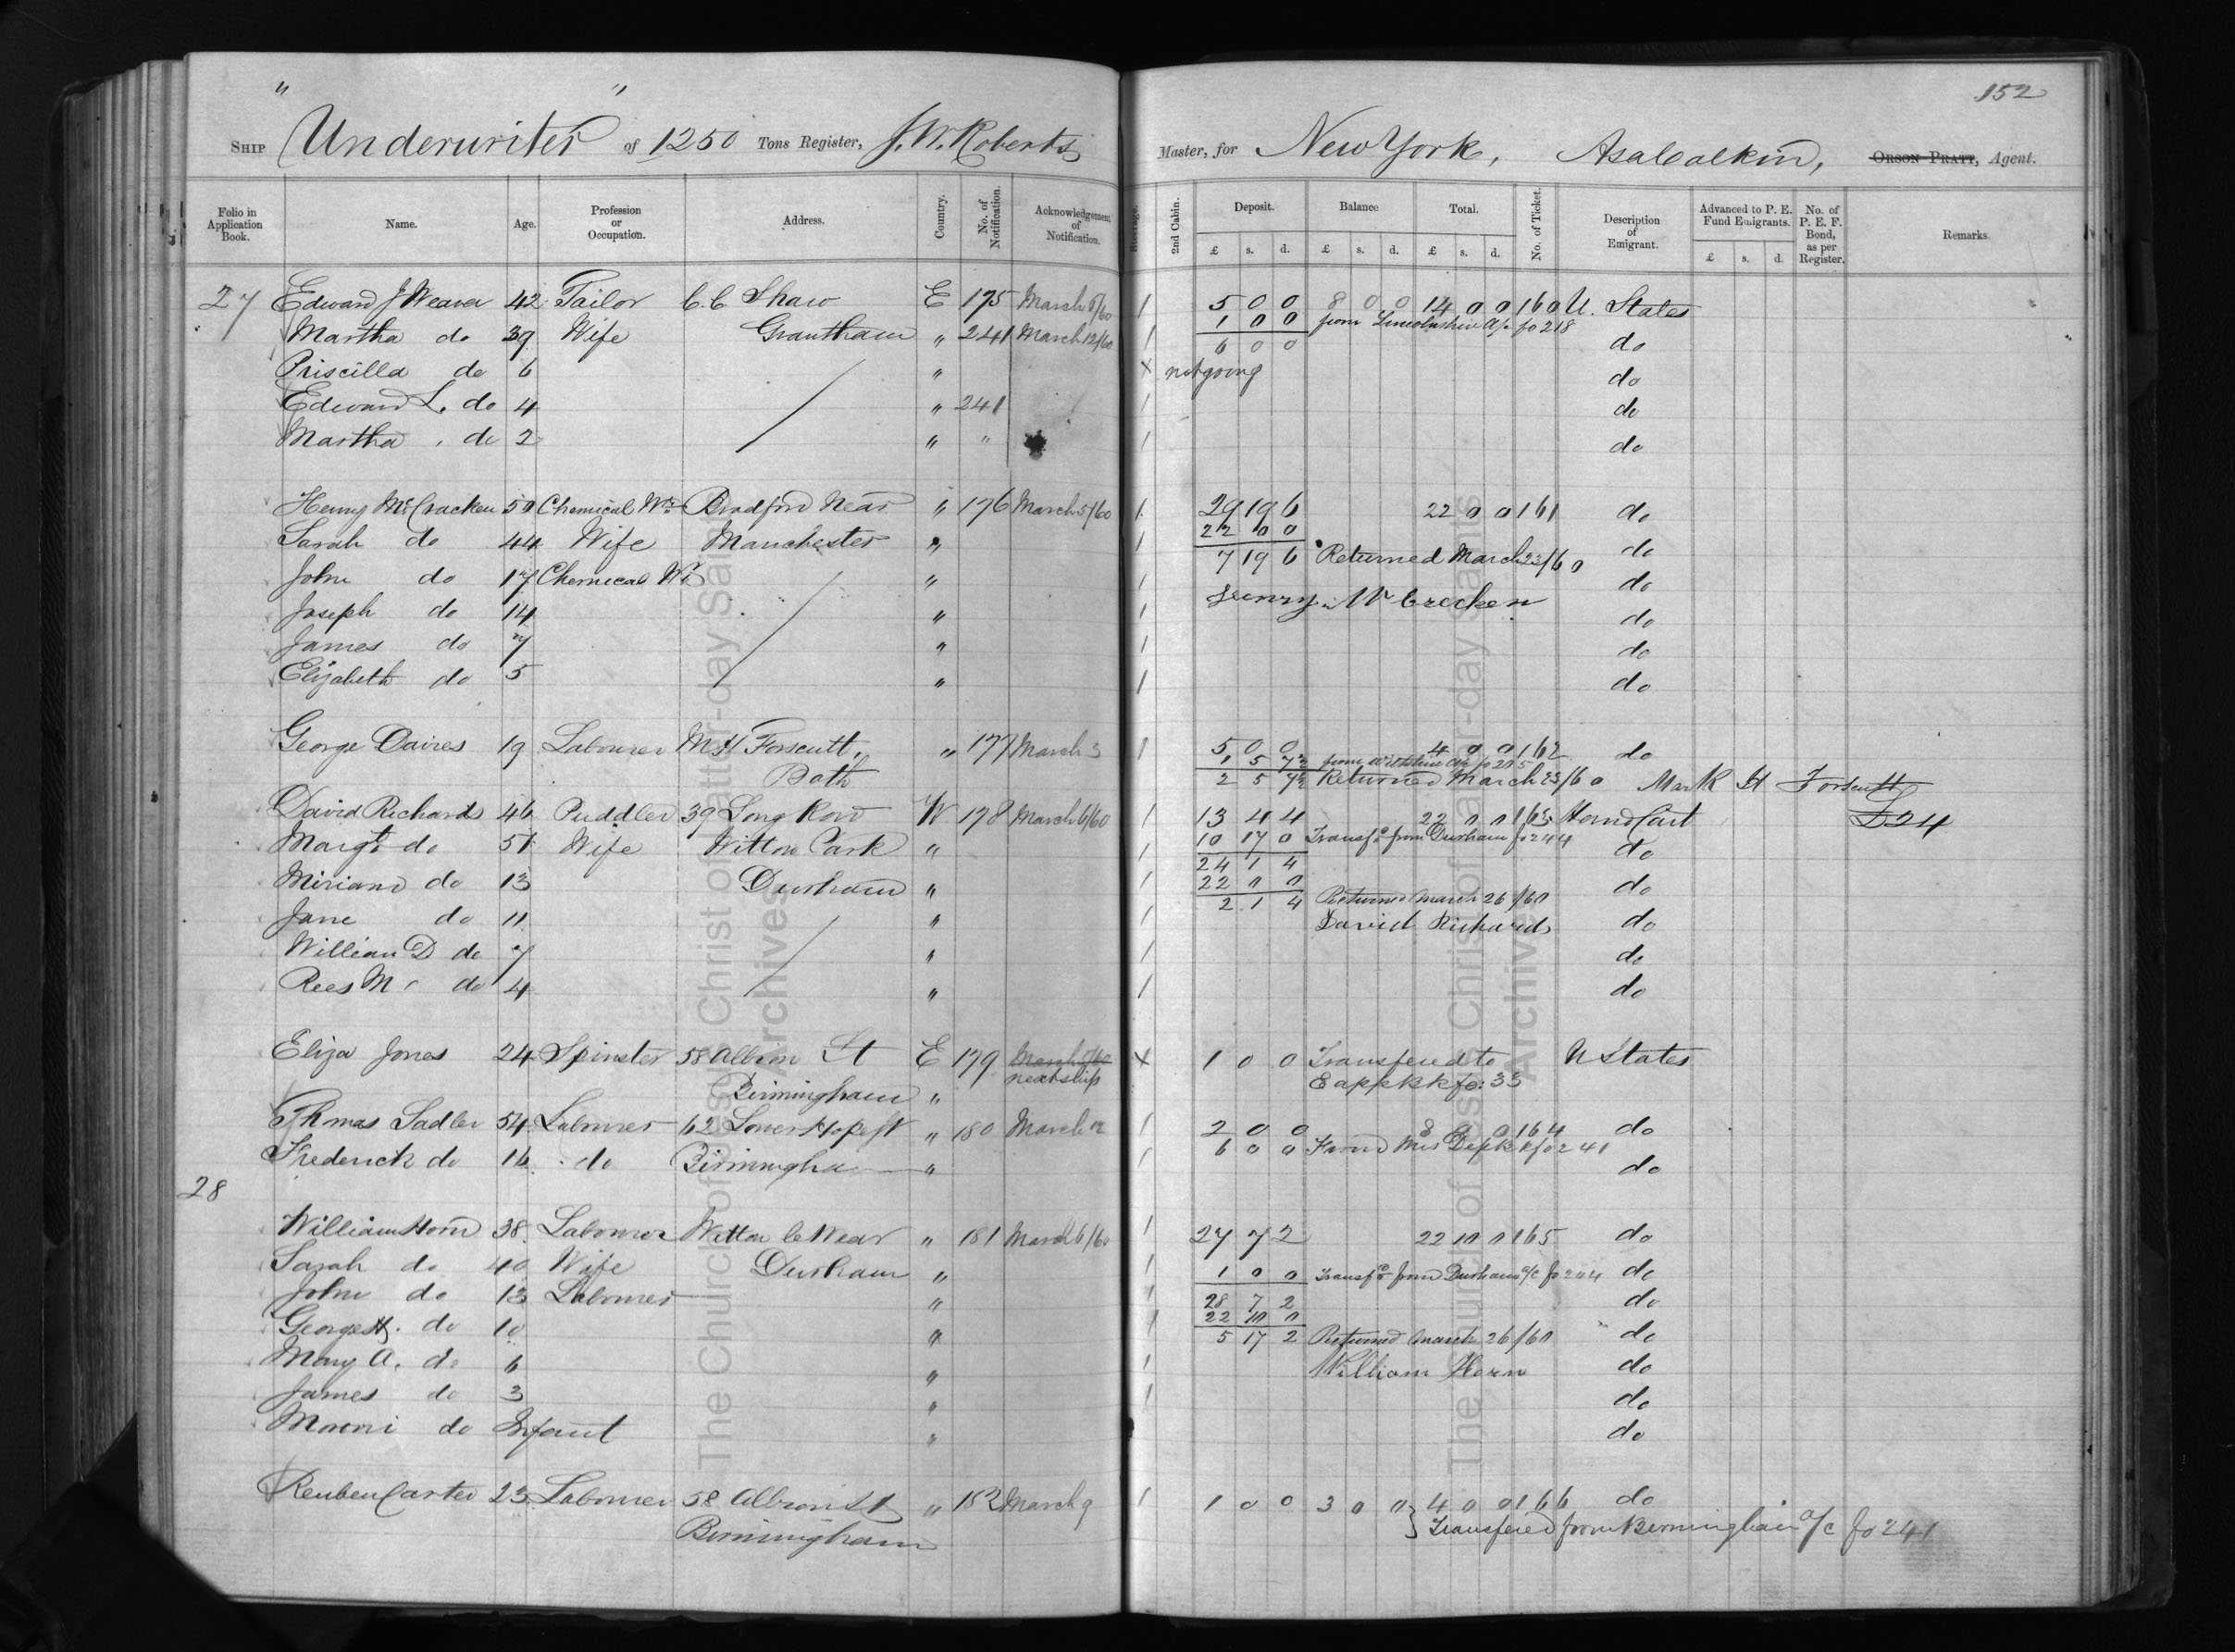 152
Ship "Underwriter" of 1250 Tons Register, J. W. Roberts Master, for New York, Asa Calkin, Orson Pratt, Agent.
Folio in Application Book. Name. Age. Profession or Occupation. Address. Country. No. of Notification. Acknowledgement of Notification. Steerage. 2nd Cabin. Deposit. Balance Total. No. of Ticket. Description of Emigrant. Advanced to P. E. Fund Emigrants. No. of P. E. F. Bond, as per Register. Remarks.
£ s. d. £ s. d. £ s. d. £ s. d.
27 Edward J Weaver 42 Tailor C. C Shaw E 175 March 6/60 1 5 0 0 8 0 0 14 0 0 160 U. States
1 0 0 from Lincolnshire a/c fo 218
Martha do 39 Wife Grantham " 241 March 12/60 1 6 0 0 do
Priscilla do 6 " x not going do
Edward L. do 4 " 241 1 do
Martha do 2 " " 1 do
Henry McCracken 50 Chemical Wr Bradford Near " 176 March 5/60 1 29 19 6 22 0 0 161 do
22 0 0
Sarah do 44 Wife Manchester " 1 7 19 6 Returned March 23/60 do
John do 17 Chemical Wr " 1 do
Henry Mc Crecken
Joseph do 14 " 1 do
James do 7 " 1 do
Elizabeth do 5 " 1 do
George Davies 19 Labourer M H Forscutt, " 177 March 3 1 5 0 0 4 0 0 162 do
from Wiltshire a/c
Bath 2 5 7½ Returned March 23/60 Mark H Forscutt
David Richards 46 Puddler 39 Long Row W 178 March 6/60 13 4 4 22 0 0 163 Hand Cart D24
10 17 0 Transfd from Durham fo 244
Margt do 51 Wife Witton Park " 1 24 1 4 do
22 0 0
Miriam do 13 Durham " 1 2 1 4 Returned March 26/60 do
Jane do 11 " 1 David Richards do
William D do 7 " 1 do
Rees M do 4 " 1 do
Eliza Jones 24 Spinster 58 Albion St E 179 next ship x 1 0 0 Transfered to U States
Birmingham " E app Bk fo: 33
Thomas Sadler 54 Labourer 62 Lower Hope St " 180 March 1 2 0 0 8 0 0 164 do
6 0 0 241
Frederick do 16 do Birmingha " 1 do
28
William Horn 38 Labourer Witton le Wear " 181 March 6/60 1 27 7 2 22 10 0 165 do
Sarah do 40 Wife Durham " 1 1 0 0 Transfd from Durham a/c fo 244 do
John do 13 Labourer " 1 28 7 2 do
22 10 0
George H. do 10 " 1 5 17 2 Returned March 26/60 do
Mary A. do 6 " 1 William Horn do
James do 3 " 1 do
Moroni do Infant " do
Reuben Carter 23 Labourer 58 Albion St " 182 March 9 1 1 0 0 3 0 0 4 0 0 166 do
Birmingham Transfered from Birmingham a/c fo 241
The Church of Jesus Christ of Latter-day Saints
Archives
The Church of Jesus Christ of Latter-day Saints
Archives